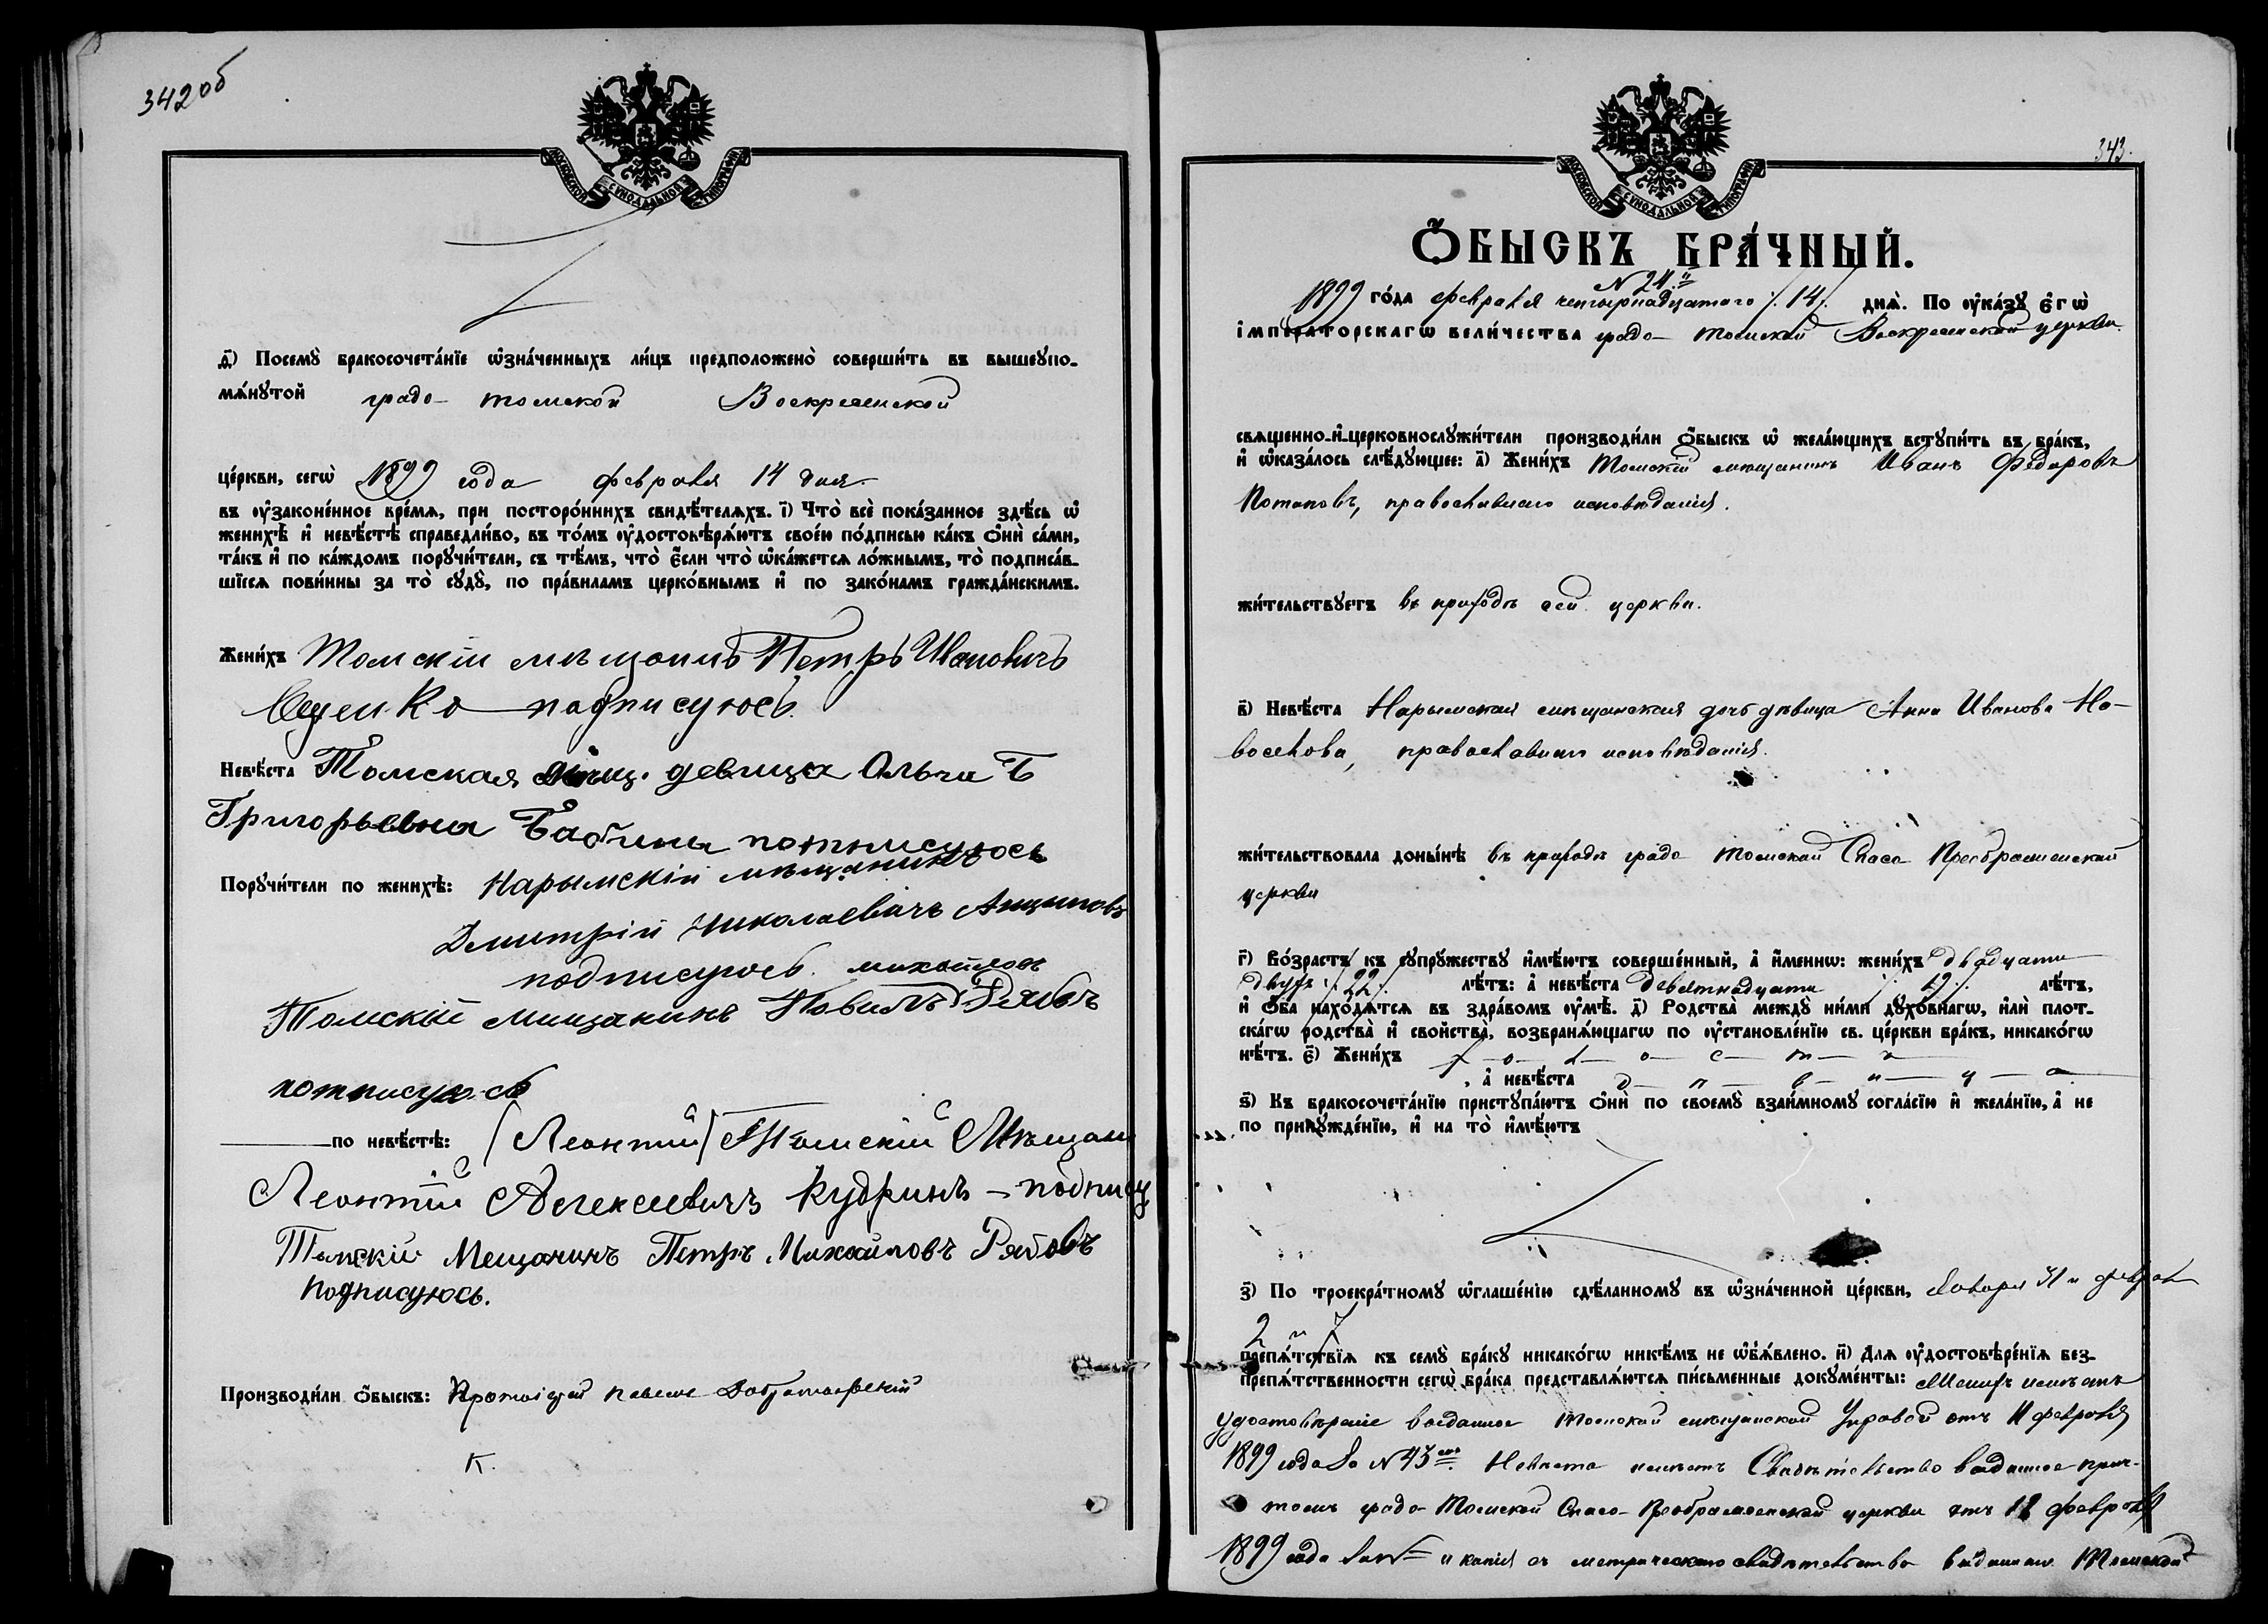 342 об
МОСКОВСКОЙ СѴНОДАЛЬНОЙ ТИПОГРАФІИ
ѳ҃) Посемꙋ̀ бракосочета́нїе ѡ҆зна́ченныхъ ли́цъ предположено̀ соверши́ть въ вышеꙋпо-
мѧ́нꙋтой градо-Томской Воскресенской
це́ркви, сегѡ̀ 1899 года февраля 14 дня
въ ᲂу҆зако́ненное вре́мѧ, при посторо́ннихъ свидѣ́телѧхъ. і҃) Что̀ всѐ пока́занное здѣ́сь ѡ҆
женихѣ̀ и҆ невѣ́стѣ справедли́во, въ то́мъ ᲂу҆достовѣрѧ́ютъ свое́ю по́дписью ка́къ ѻ҆нѝ са́ми,
та́къ и҆ по ка́ждомъ порꙋчи́тели, съ тѣ́мъ, что̀ є҆́сли что̀ ѡ҆ка́жетсѧ ло́жнымъ, то̀ подписа́в-
шїесѧ пови́нны за то̀ сꙋдꙋ̀, по пра́виламъ церко́внымъ и҆ по зако́намъ гражда́нскимъ.
Жени́хъ Томскій мѣщанинъ Петръ Ивановичъ
подписуюсь.
Невѣ́ста Томская мѣщ. девица Ольга Б
Григорьевна Бабина потписуюсь
Порꙋчи́тели по женихѣ̀: Нарымскій мѣщанинъ
Дмитрій Николаевичъ
подписуюсь. михайловъ
Томский Мищанинъ Павилъ Рябовъ
потписуюсь
по невѣ́стѣ: (Леонтий) Томскій Мѣщан
Леонтій Алексеевичъ Кудринъ – подпису
Томскій Мещанинъ Петръ Михайловъ Рябовъ
подписуюсь.
Производи́ли ѻ҆́быскъ: Протоіерей Павелъ
К.
343.
МОСКОВСКОЙ СѴНОДАЛЬНОЙ ТИПОГРАФІИ
Ѻ҆́БЫСКЪ БРА́ЧНЫЙ.
N 24.й
1899 го́да февраля четырнадцатаго /14/ днѧ̀. По ᲂу҆ка́зꙋ є҆гѡ̀
і҆мпера́торскагѡ вели́чества градо-Томской Воскресенской церкви.
свѧще́нно-и҆-церковнослꙋжи́тели производи́ли ѻ҆́быскъ ѡ҆ жела́ющихъ встꙋпи́ть въ бра́къ,
и҆ ѡ҆каза́лось слѣ́дꙋющее: а҃) Жени́хъ Томскій мѣщанинъ Иванъ Федоровъ
Потаповъ, православнаго исповѣданія.
жи́тельствꙋетъ въ приходѣ сей церкви.
в҃) Невѣ́ста Нарымская мѣщанская дочь девица Анна Иванова Но-
воселова, православнаго исповѣданія.
жи́тельствовала доны́нѣ въ приходѣ градо Томской Спасо Преображенской
церкви
г҃) Во́зрастъ къ сꙋпрꙋ́жествꙋ и҆мѣ́ютъ соверше́нный, а҆ и҆́меннѡ: жени́хъ двадцати
двухъ /22/ лѣ́тъ: а҆ невѣ́ста девятнадцати /19/ лѣ́тъ,
и҆ ѻ҆́ба нахо́дѧтсѧ въ здра́вомъ ᲂу҆мѣ̀. д҃) Родства̀ междꙋ̀ ни́ми дꙋхо́внагѡ, и҆лѝ плот-
ска́гѡ родства̀ и҆ сво́йства, возбранѧ́ющагѡ по ᲂу҆становле́нїю св. це́ркви бра́къ, никако́гѡ
нѣ́тъ. є҃) Жени́хъ х-о-л-о-с-т-ъ
, а҆ невѣ́ста д-ѣ-в-и-ц-а
ѕ҃) Къ бракосочета́нїю пристꙋпа́ютъ ѻ҆нѝ по своемꙋ̀ взаи́мномꙋ согла́сїю и҆ жела́нїю, а҆ не
по принꙋжде́нїю, и҆ на то̀ и҆мѣ́ютъ
з҃) По троекра́тномꙋ ѡ҆глаше́нїю сдѣ́ланномꙋ въ ѡ҆зна́ченной це́ркви, января 31 и феврал
2 и 7
препѧ́тствїѧ къ семꙋ̀ бра́кꙋ никако́гѡ никѣ́мъ не ѡ҆б̾ѧ́влено. и҃) Длѧ ᲂу҆достовѣре́нїѧ без-
препѧ́тственности сегѡ̀ бра́ка представлѧ́ютсѧ пи́сьменные докꙋме́нты: Женихъ имѣетъ
удостовѣреніе выданное Томской мѣщанской Управой отъ 11 февраля
1899 года за N 43 Невѣста имѣетъ Свидѣтельство выданное прич-
томъ градо-Томской Спасо-Преображенской церкви отъ 12 февраля
1899 года за N – и копія съ метрическаго свидѣтельства выданнаго Томской